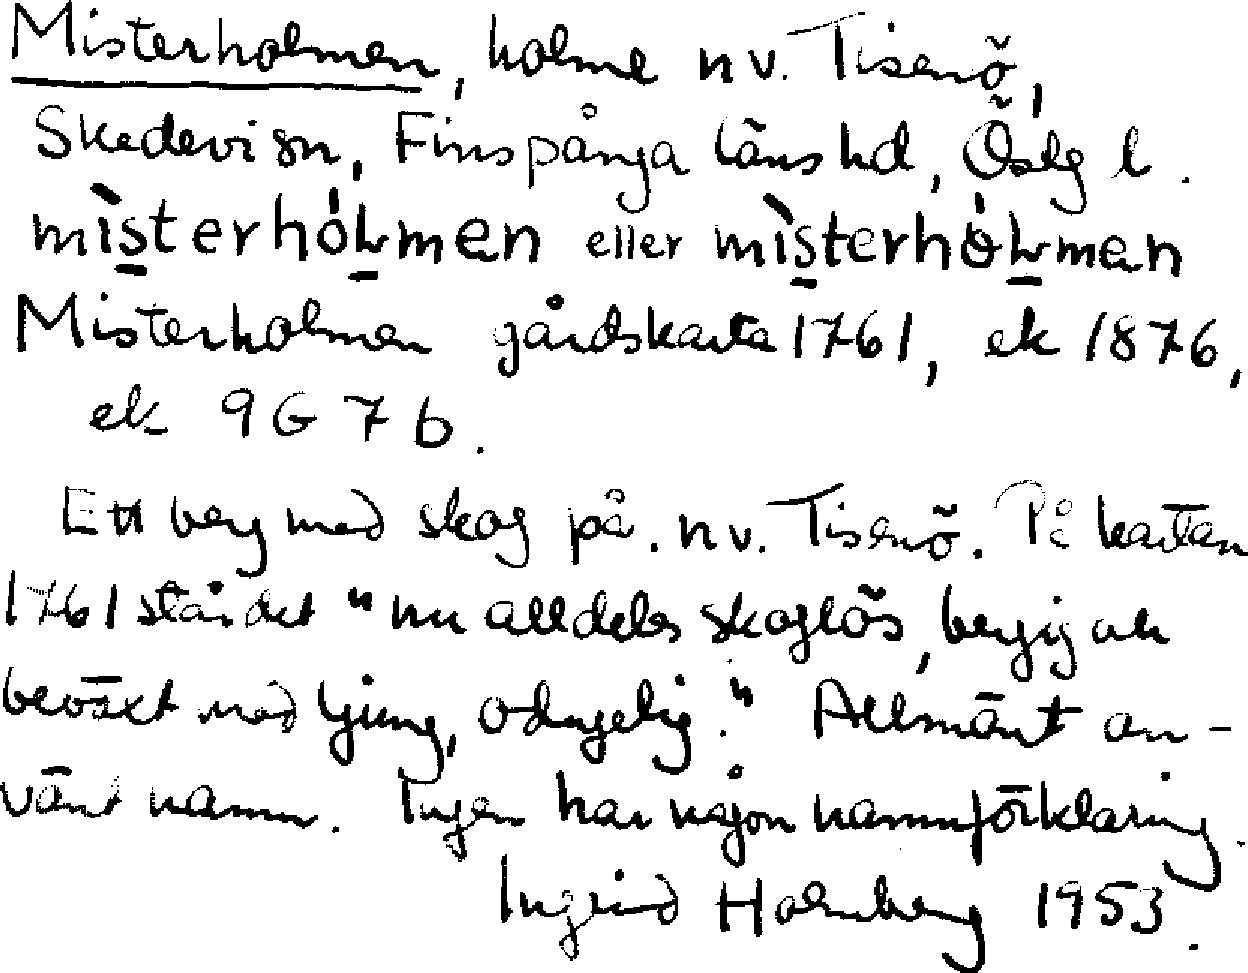 Misterholmen, holme nv. Tisenö,
Skedevi sn, Finspånga läns hd, Östg l.
mìsterhól̠men eller mìsterhól̠men
Misterholmen gårdskarta 1761, ek 1876,
ek 9G 7b.
Ett berg med skog på. nv. Tisenö. På kartan
1761 står det "nu alldeles skoglös, bergig och
beväxt med ljung, odugelig." Allmänt an-
vänt namn. Ingen har någon namnförklaring.
Ingrid Holmberg 1953.